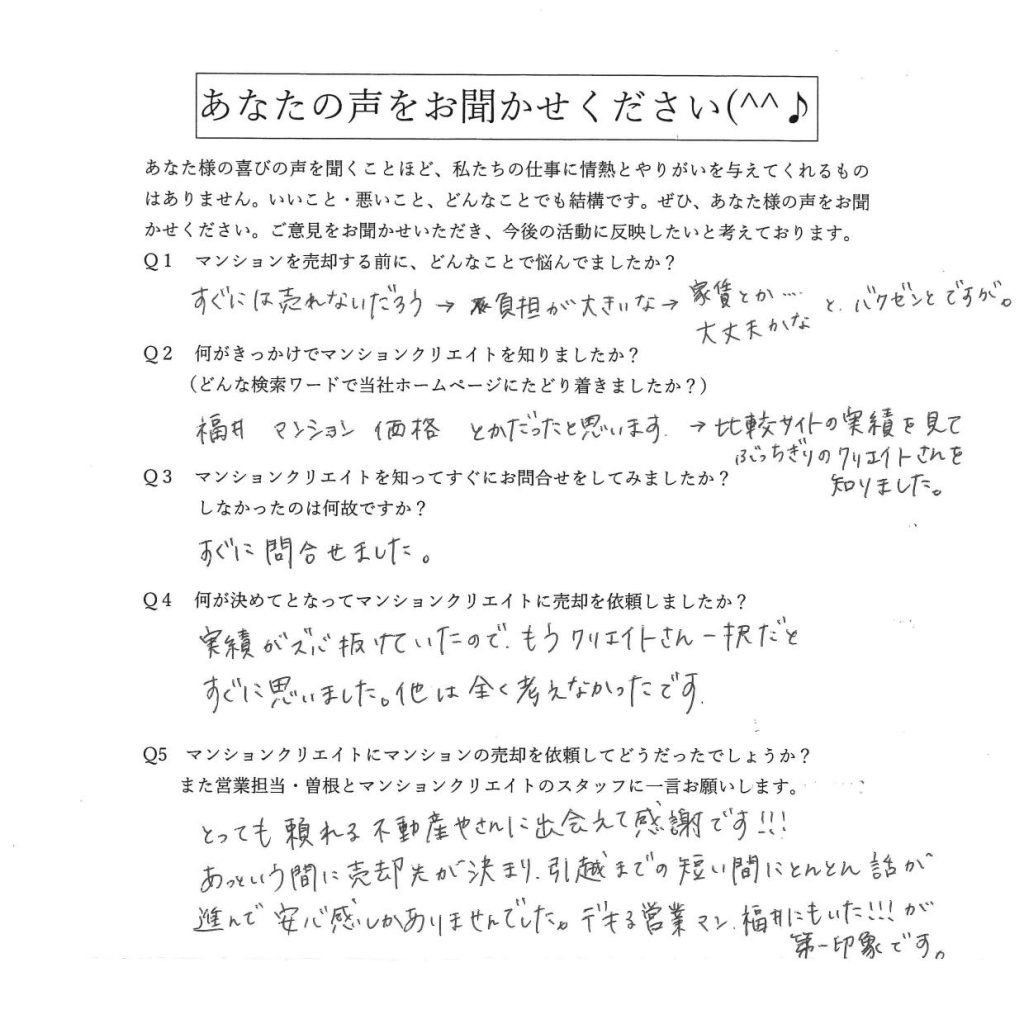 あなたの声をお聞かせください(^^♪
あなた様の喜びの声を聞くことほど、私たちの仕事に情熱とやりがいを与えてくれるもの
はありません。いいこと・悪いこと、どんなことでも結構です。ぜひ、あなた様の声をお聞
かせください。ご意見をお聞かせいただき、今後の活動に反映したいと考えております。
Q1 マンションを売却する前に、どんなことで悩んでましたか？
すぐには売れないだろう → 負担が大きいな → 家賃とか…
大丈夫かな と、バクゼンとですが。
Q2 何がきっかけでマンションクリエイトを知りましたか？
（どんな検索ワードで当社ホームページにたどり着きましたか？）
福井 マンション 価格 とかだったと思います。→ 比較サイトの実績を見て
ぶっちぎりのクリエイトさんを
知りました。
Q3 マンションクリエイトを知ってすぐにお問合せをしてみましたか？
しなかったのは何故ですか？
すぐに問合せました。
Q4 何が決めてとなってマンションクリエイトに売却を依頼しましたか？
実績がズバ抜けていたので、もうクリエイトさん一択だと
すぐに思いました。他は全く考えなかったです。
Q5 マンションクリエイトにマンションの売却を依頼してどうだったでしょうか？
また営業担当・曽根とマンションクリエイトのスタッフに一言お願いします。
とっても頼れる不動産やさんに出会えて感謝です!!!
あっという間に売却先が決まり、引越までの短い間にとんとん話が
進んで安心感しかありませんでした。デキる営業マン、福井にもいた!!!が
第一印象です。